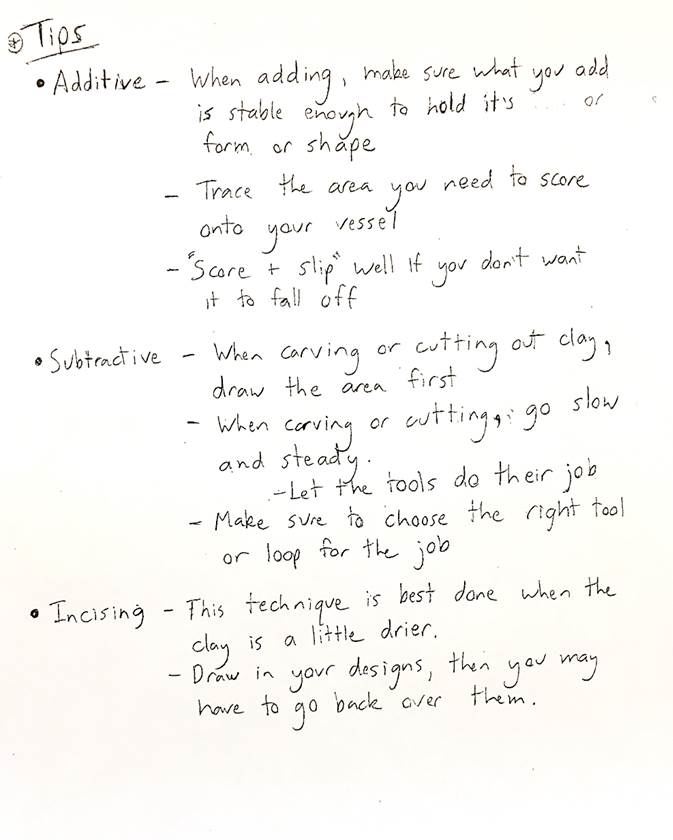 ⊕ Tips
• Additive - When adding, make sure what you add
is stable enough to hold it's or
form or shape
- Trace the area you need to score
onto your vessel
- "Score + slip" well if you don't want
it to fall off
• Subtractive - When carving or cutting out clay,
draw the area first
- When carving or cutting, go slow
and steady.
- Let the tools do their job
- Make sure to choose the right tool
or loop for the job
• Incising - This technique is best done when the
clay is a little drier.
- Draw in your designs, then you may
have to go back over them.